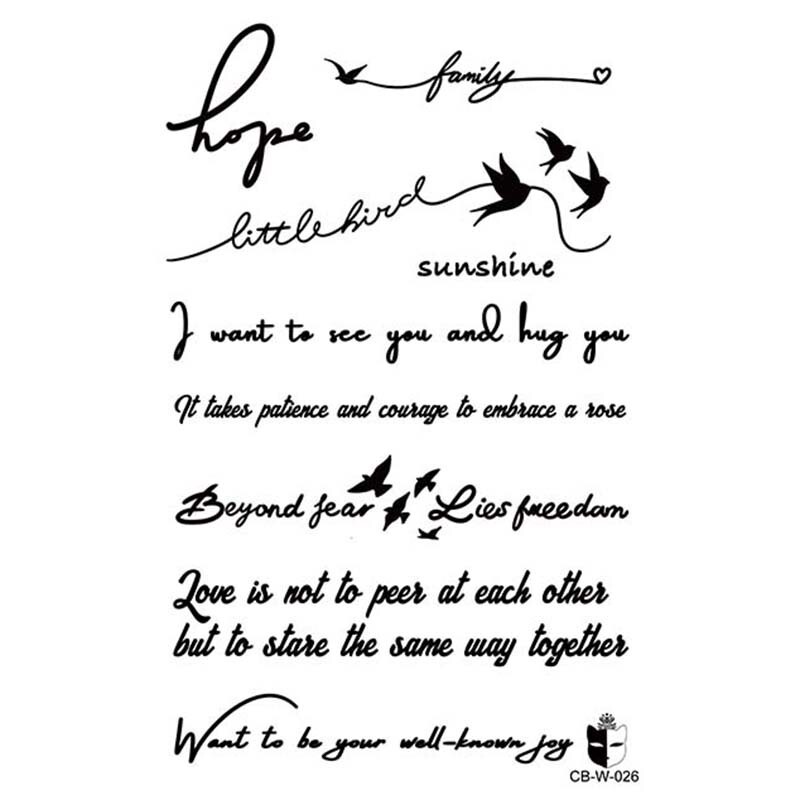 hope
family
little bird
sunshine
I want to see you and hug you
It takes patience and courage to embrace a rose
Beyond fear Lies freedom
Love is not to peer at each other
but to stare the same way together
Want to be your well-known joy
CB-W-026